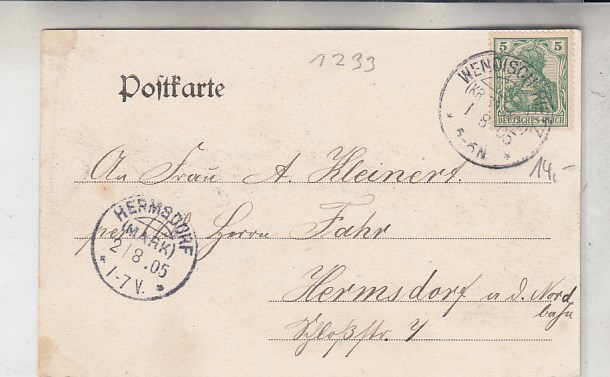 1233
5 5
DEUTSCHES REICH
WENDISCH
1 8 05
* 5-6N *
Postkarte
14,-
An Frau A. Kleinert.
HERMSDORF
(MARK)
2/8.05
* 1-7V. *
per Herrn Fahr
Hermsdorf a d. Nord
bahn
Schloßstr. 4